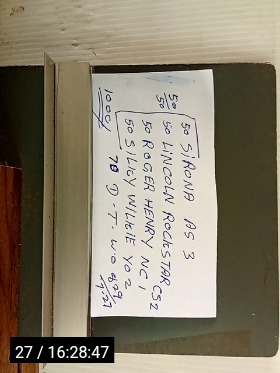 50 SiRONA AS 3
50/50 50 LINCOLN ROCKSTAR CS2
50 ROGER HENRY NC 1
1000/ 50 SILKY WILKIE YO 2
70 D.T.
27 / 16:28:47